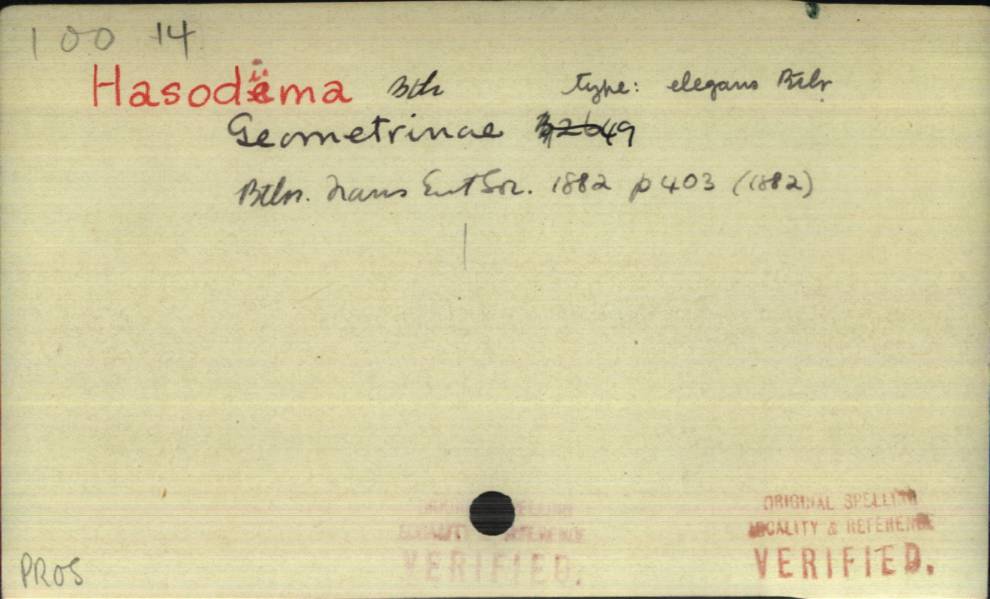 100 14
Hasodima Btlr type: elegans Btlr
Geometrinae 49
Btlr. Trans Ent Soc. 1882 p 403 (1882)
ORIGINAL SPELLING
LOCALITY & REFERENCE
VERIFIED.
ORIGINAL SPELLING
LOCALITY & REFERENCE
VERIFIED.
PROS